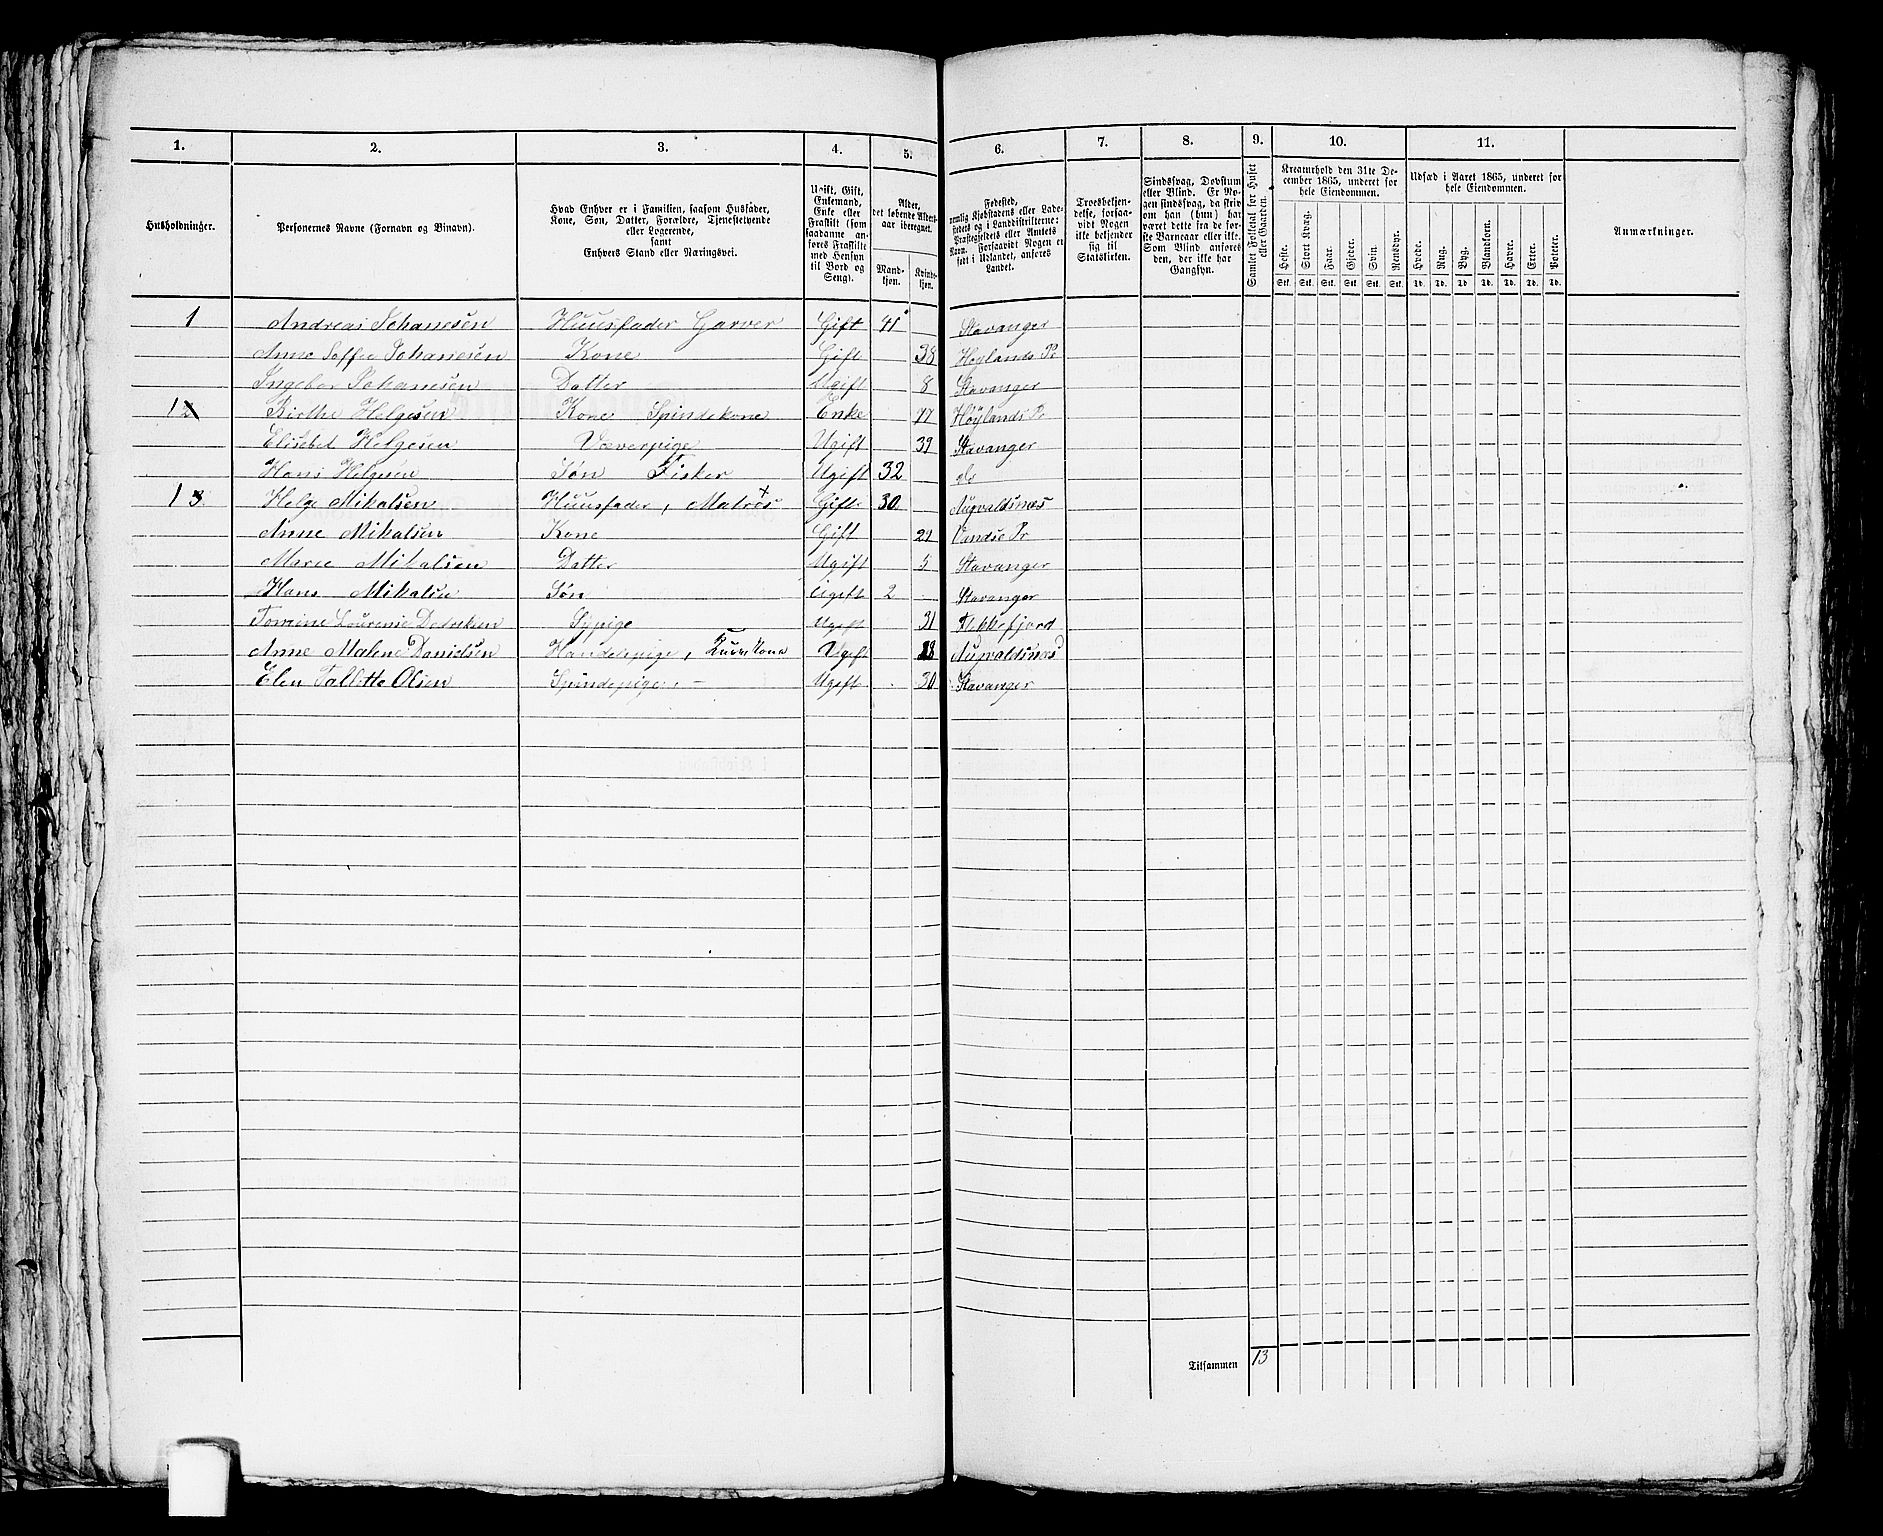 1. 2. 3. 4. 5. 6. 7. 8. 9. 10. 11.
Husholdninger.
Personernes Navne (Fornavn og Binavn).
Hvad Enhver er i Familien, saasom Husfader,
Kone, Søn, Datter, Forældre, Tjenestetyende
eller Logerende,
samt
Enhvers Stand eller Næringsvei.
Ugift, Gift,
Enkemand,
Enke eller
Fraskilt (som
saadanne an-
føres Fraskilte
med Hensyn
til Bord og
Seng).
Alder,
det løbende Alders-
aar iberegnet.
Mand-
kjøn.
Kvinde-
kjøn.
Fødested,
nemlig Kjøbstadens eller Lade-
stedets og i Landdistrikterne:
Præstegjeldets eller Amtets
Navn. Forsaavidt Nogen er
født i Udlandet, anføres
Landet.
Troesbekjen-
delse, forsaa-
vidt Nogen
ikke bekjender
sig til
Statskirken.
Sindssvag, Døvstum
eller Blind. Er No-
gen sindssvag, da skriv
om han (hun) har
været dette fra de før-
ste Barneaar eller ikke.
Som Blind anføres
den, der ikke har
Gangsyn.
Samlet Folketal for Huset
eller Gaarden.
Kreaturhold den 31te De-
cember 1865, underet for
hele Eiendommen.
Heste. Stort Kvæg. Faar. Gjeder. Svin. Rensdyr.
Stk. Stk. Stk. Stk. Stk. Stk.
Udsæd i Aaret 1865, underet for
hele Eiendommen.
Hvede. Rug. Byg. Blandkorn. Havre. Erter. Poteter.
Td. Td. Td. Td. Td. Td. Td.
Anmærkninger.
1 Andreas Johanesen Huusfader Garver Gift 41 Stavanger
Anne Soffie Johanesen Kone Gift 38 Høylands Pr
Ingebor Johanesen Datter Ugift 8 Stavanger
12 Birthe Helgesen Kone Spindekone Enke 77 Høylands Pr
Elisebet Helgesen Væverpige Ugift 39 Stavanger
Hans Helgesen Søn Fisker Ugift 32 do
13 Helge Mikalsen Huusfader, Matros Gift 30 Augvaldsnæs
Anne Mikalsen Kone Gift 29 Vandse Pr
Marie Mikalsen Datter Ugift 5 Stavanger
Hans Mikalsen Søn Ugift 2 Stavanger
Tomine Lourense Sypige Ugift 31 Flekkefjord
Anne Malene Danielsen Handelspige, Ugift 28 Augvaldsnæs
Elen Tallette Olsen Spindepige Ugift 30 Stavanger
Tilsammen 13